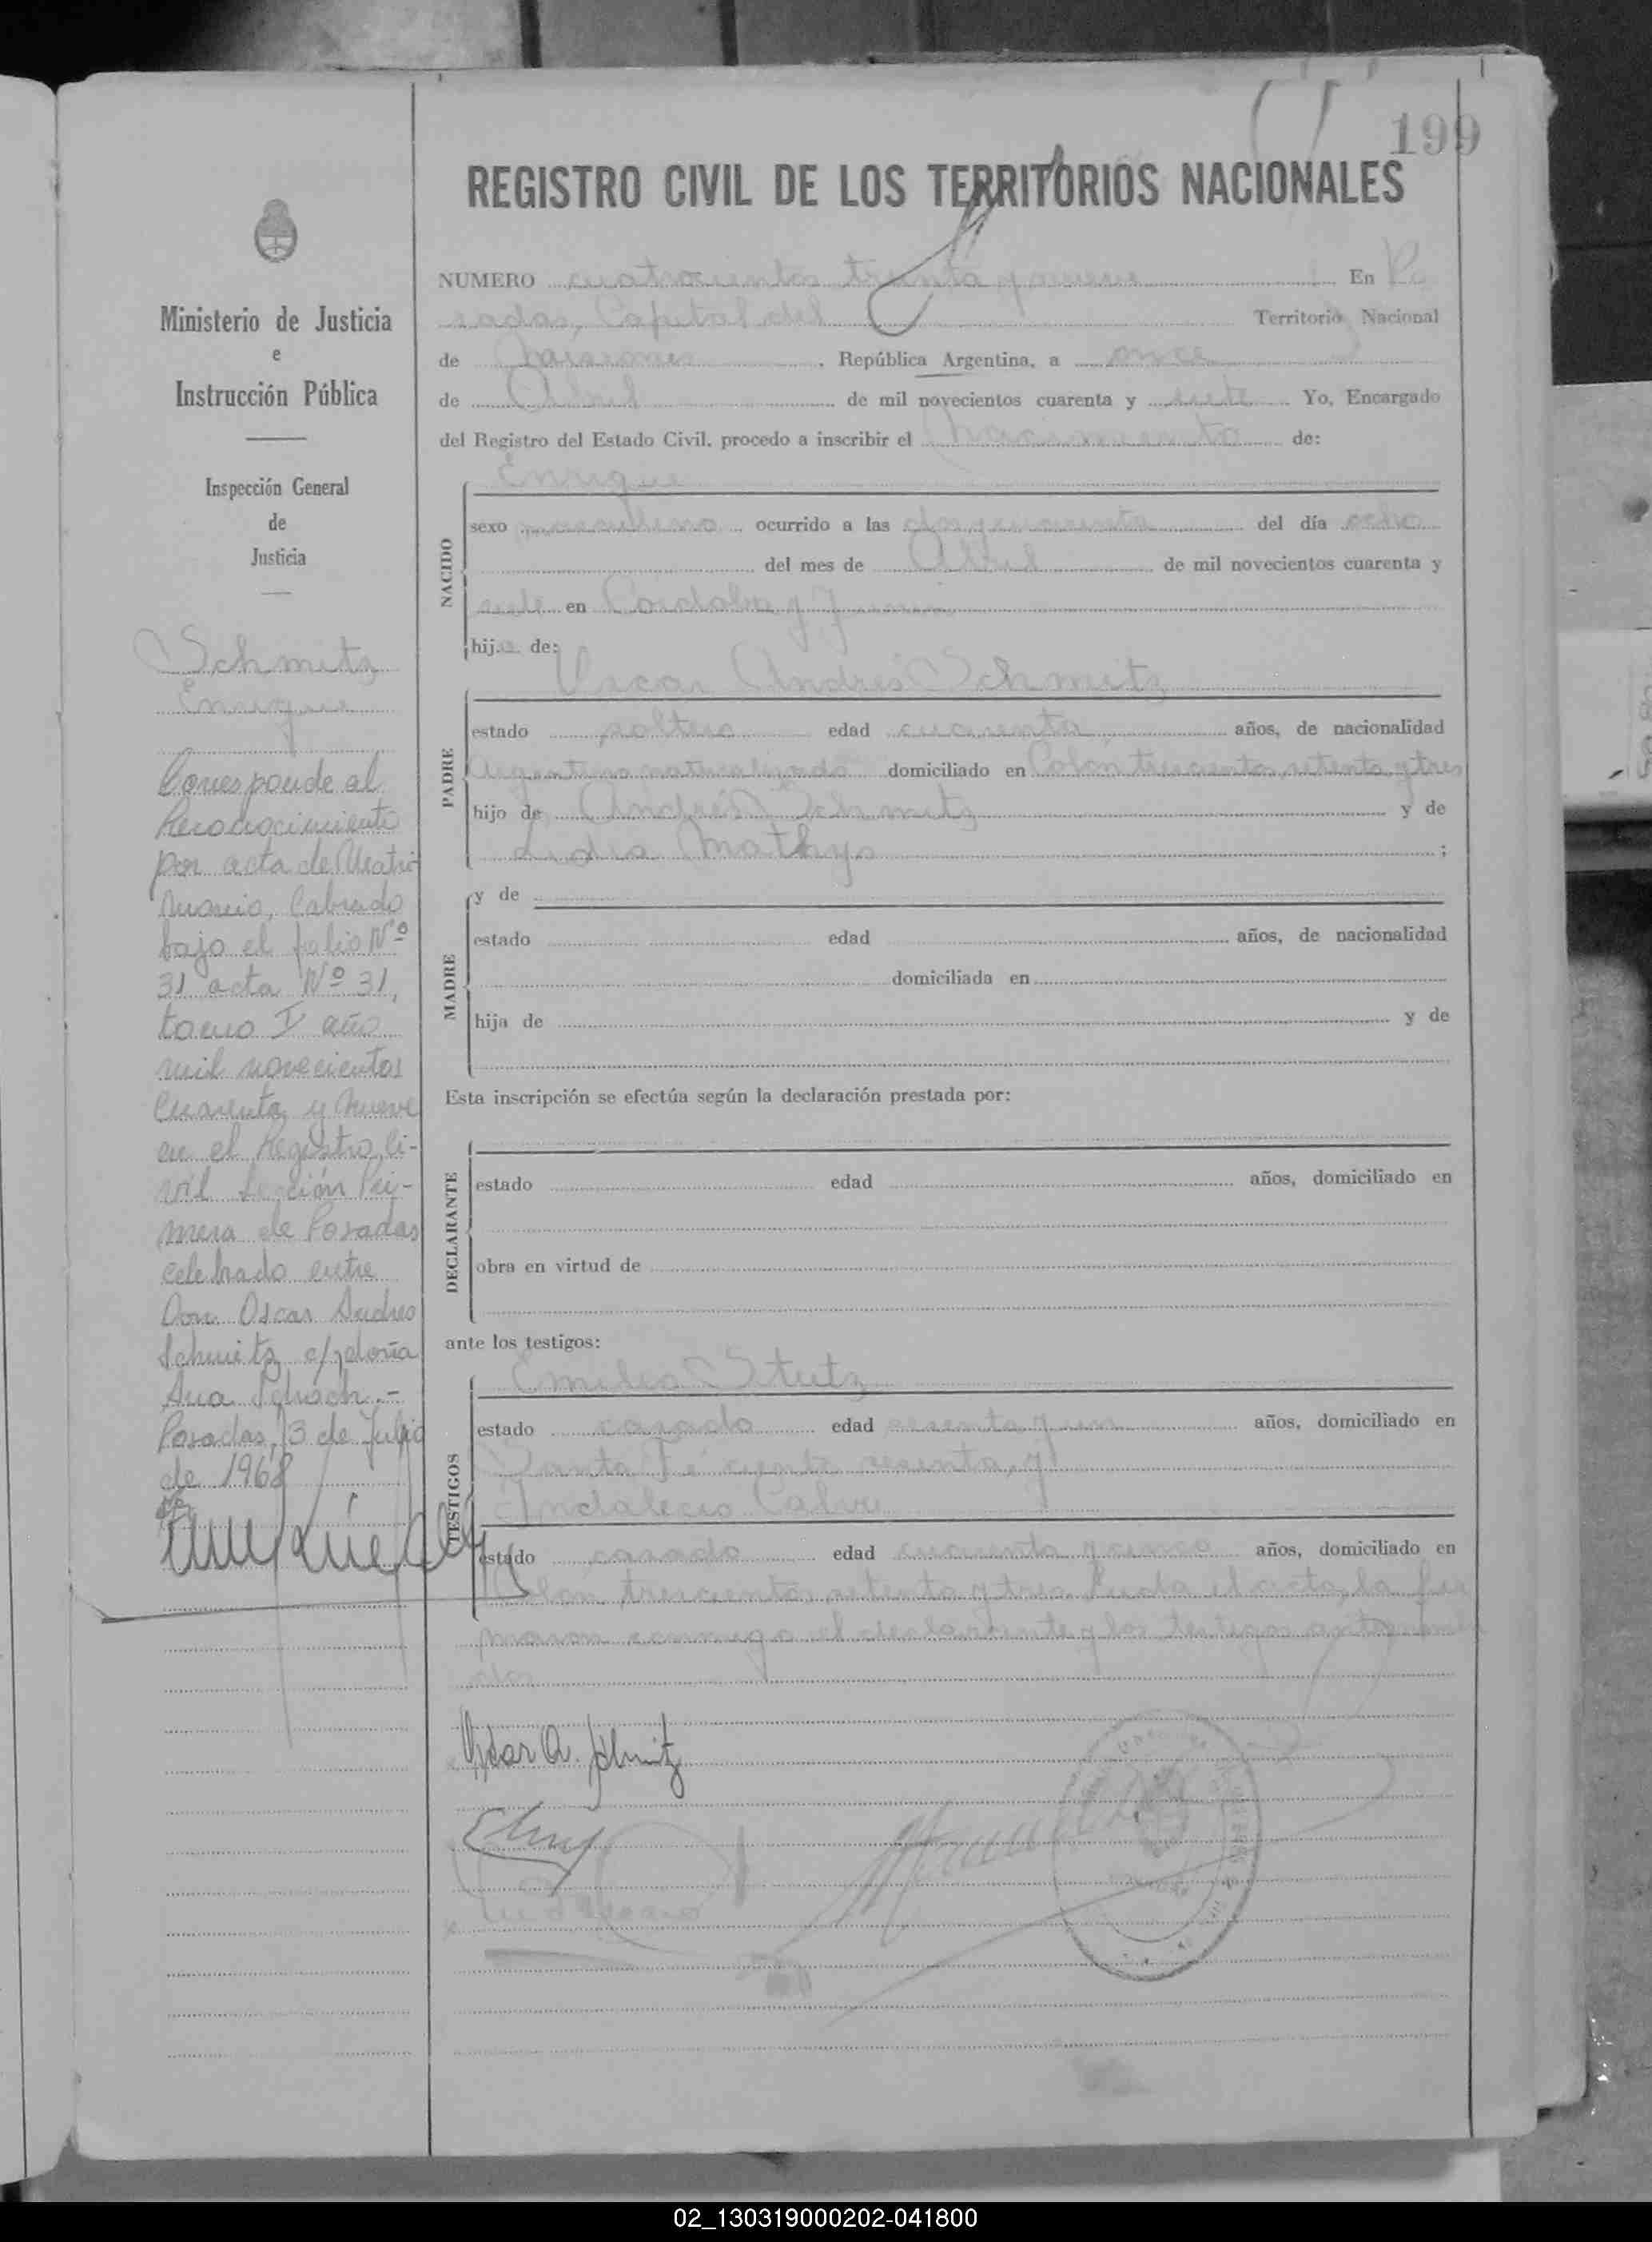 199
REGISTRO CIVIL DE LOS TERRITORIOS NACIONALES
NUMERO cuatrocientos treinta y nueve En Po
sadas, Capital del Territorio Nacional
de Misiones, República Argentina, a once
de Abril de mil novecientos cuarenta y siete Yo, Encargado
del Registro del Estado Civil, procedo a inscribir el nacimiento de:
NACIDO
Enrique
sexo masculino ocurrido a las dos y cuarenta del día ocho
del mes de Abril de mil novecientos cuarenta y
siete en Cordoba y Junin
hijo de:
PADRE
Oscar Andrés Schmitz
estado soltero edad cuarenta años, de nacionalidad
Argentino naturalizado domiciliado en Colón trescientos setenta y tres
hijo de Andrés Schmitz y de
Lidia Mathys ;
MADRE
y de
estado edad años, de nacionalidad
domiciliada en
hija de y de
Esta inscripción se efectúa según la declaración prestada por:
DECLARANTE
estado edad años, domiciliado en
obra en virtud de
ante los testigos:
TESTIGOS
Emilio Stutz
estado casado edad sesenta y un años, domiciliado en
Santa Fé ciento sesenta, y
Indalecio Calvo
estado casado edad cuarenta y cinco años, domiciliado en
Colón trescientos setenta y tres. Leida el acta, la fir
maron conmigo el declarante y los testigos
dos
Oscar A. Schmitz
Ministerio de Justicia
e
Instrucción Pública
Inspección General
de
Justicia
Schmitz
Enrique
Corresponde al
Reconocimiento
por acta de Matri
monio, Labrado
bajo el folio Nº
31 acta Nº 31,
tomo I año
mil novecientos
Cuarenta y nueve
en el Registro Ci-
vil Sección Pri-
mera de Posadas
celebrado entre
Don Oscar Andres
Schmitz c/ doña
Ana Schoch.-
Posadas, 3 de Julio
de 1968
02_130319000202-041800